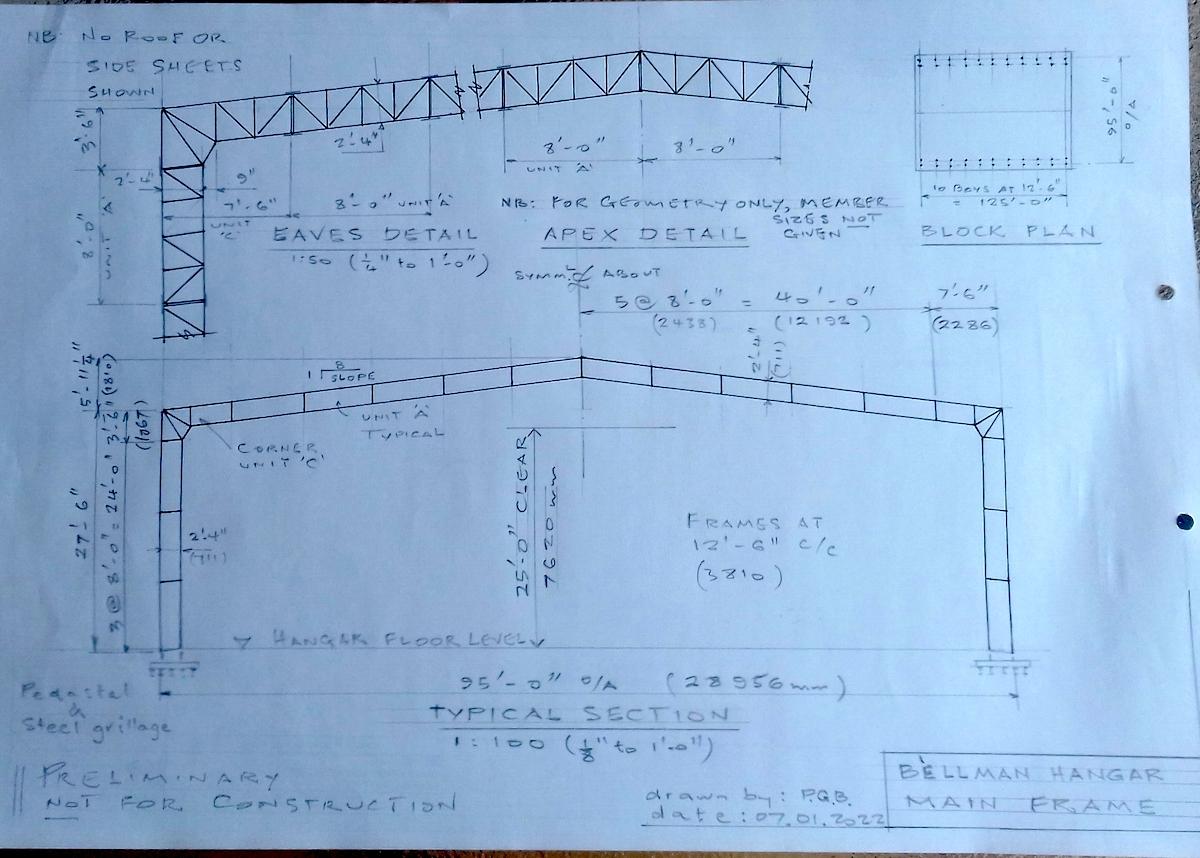 NB: NO ROOF OR
SIDE SHEETS
SHOWN
3'-6"
2'-4"
9"
7'-6"
UNIT 'C'
8'-0"
UNIT 'A'
2'-4"
8'-0" UNIT 'A'
EAVES DETAIL
1:50 (1/4" to 1'-0")
8'-0"
UNIT 'A'
8'-0"
NB: FOR GEOMETRY ONLY, MEMBER
SIZES NOT
GIVEN
APEX DETAIL
95'-0"
O/A
10 BAYS AT 12'-6"
= 125'-0"
BLOCK PLAN
SYMML ABOUT
5 @ 8'-0" = 40'-0"
(2438)
(12192)
7'-6"
(2286)
2'-4"
(711)
5'-11 1/4"
(1810)
3'-6"
(1067)
27'-6"
3 @ 8'-0" = 24'-0"
1
8
SLOPE
UNIT 'A'
TYPICAL
CORNER
UNIT 'C'
2'-4"
(711)
25'-0" CLEAR
7620mm
FRAMES AT
12'-6" c/c
(3810)
HANGAR FLOOR LEVEL
Pedastal
&
Steel grillage
95'-0" O/A (28956mm)
TYPICAL SECTION
1:100 (1/8" to 1'-0")
PRELIMINARY
NOT FOR CONSTRUCTION
drawn by: P.G.B.
date: 07.01.2022
BELLMAN HANGAR
MAIN FRAME